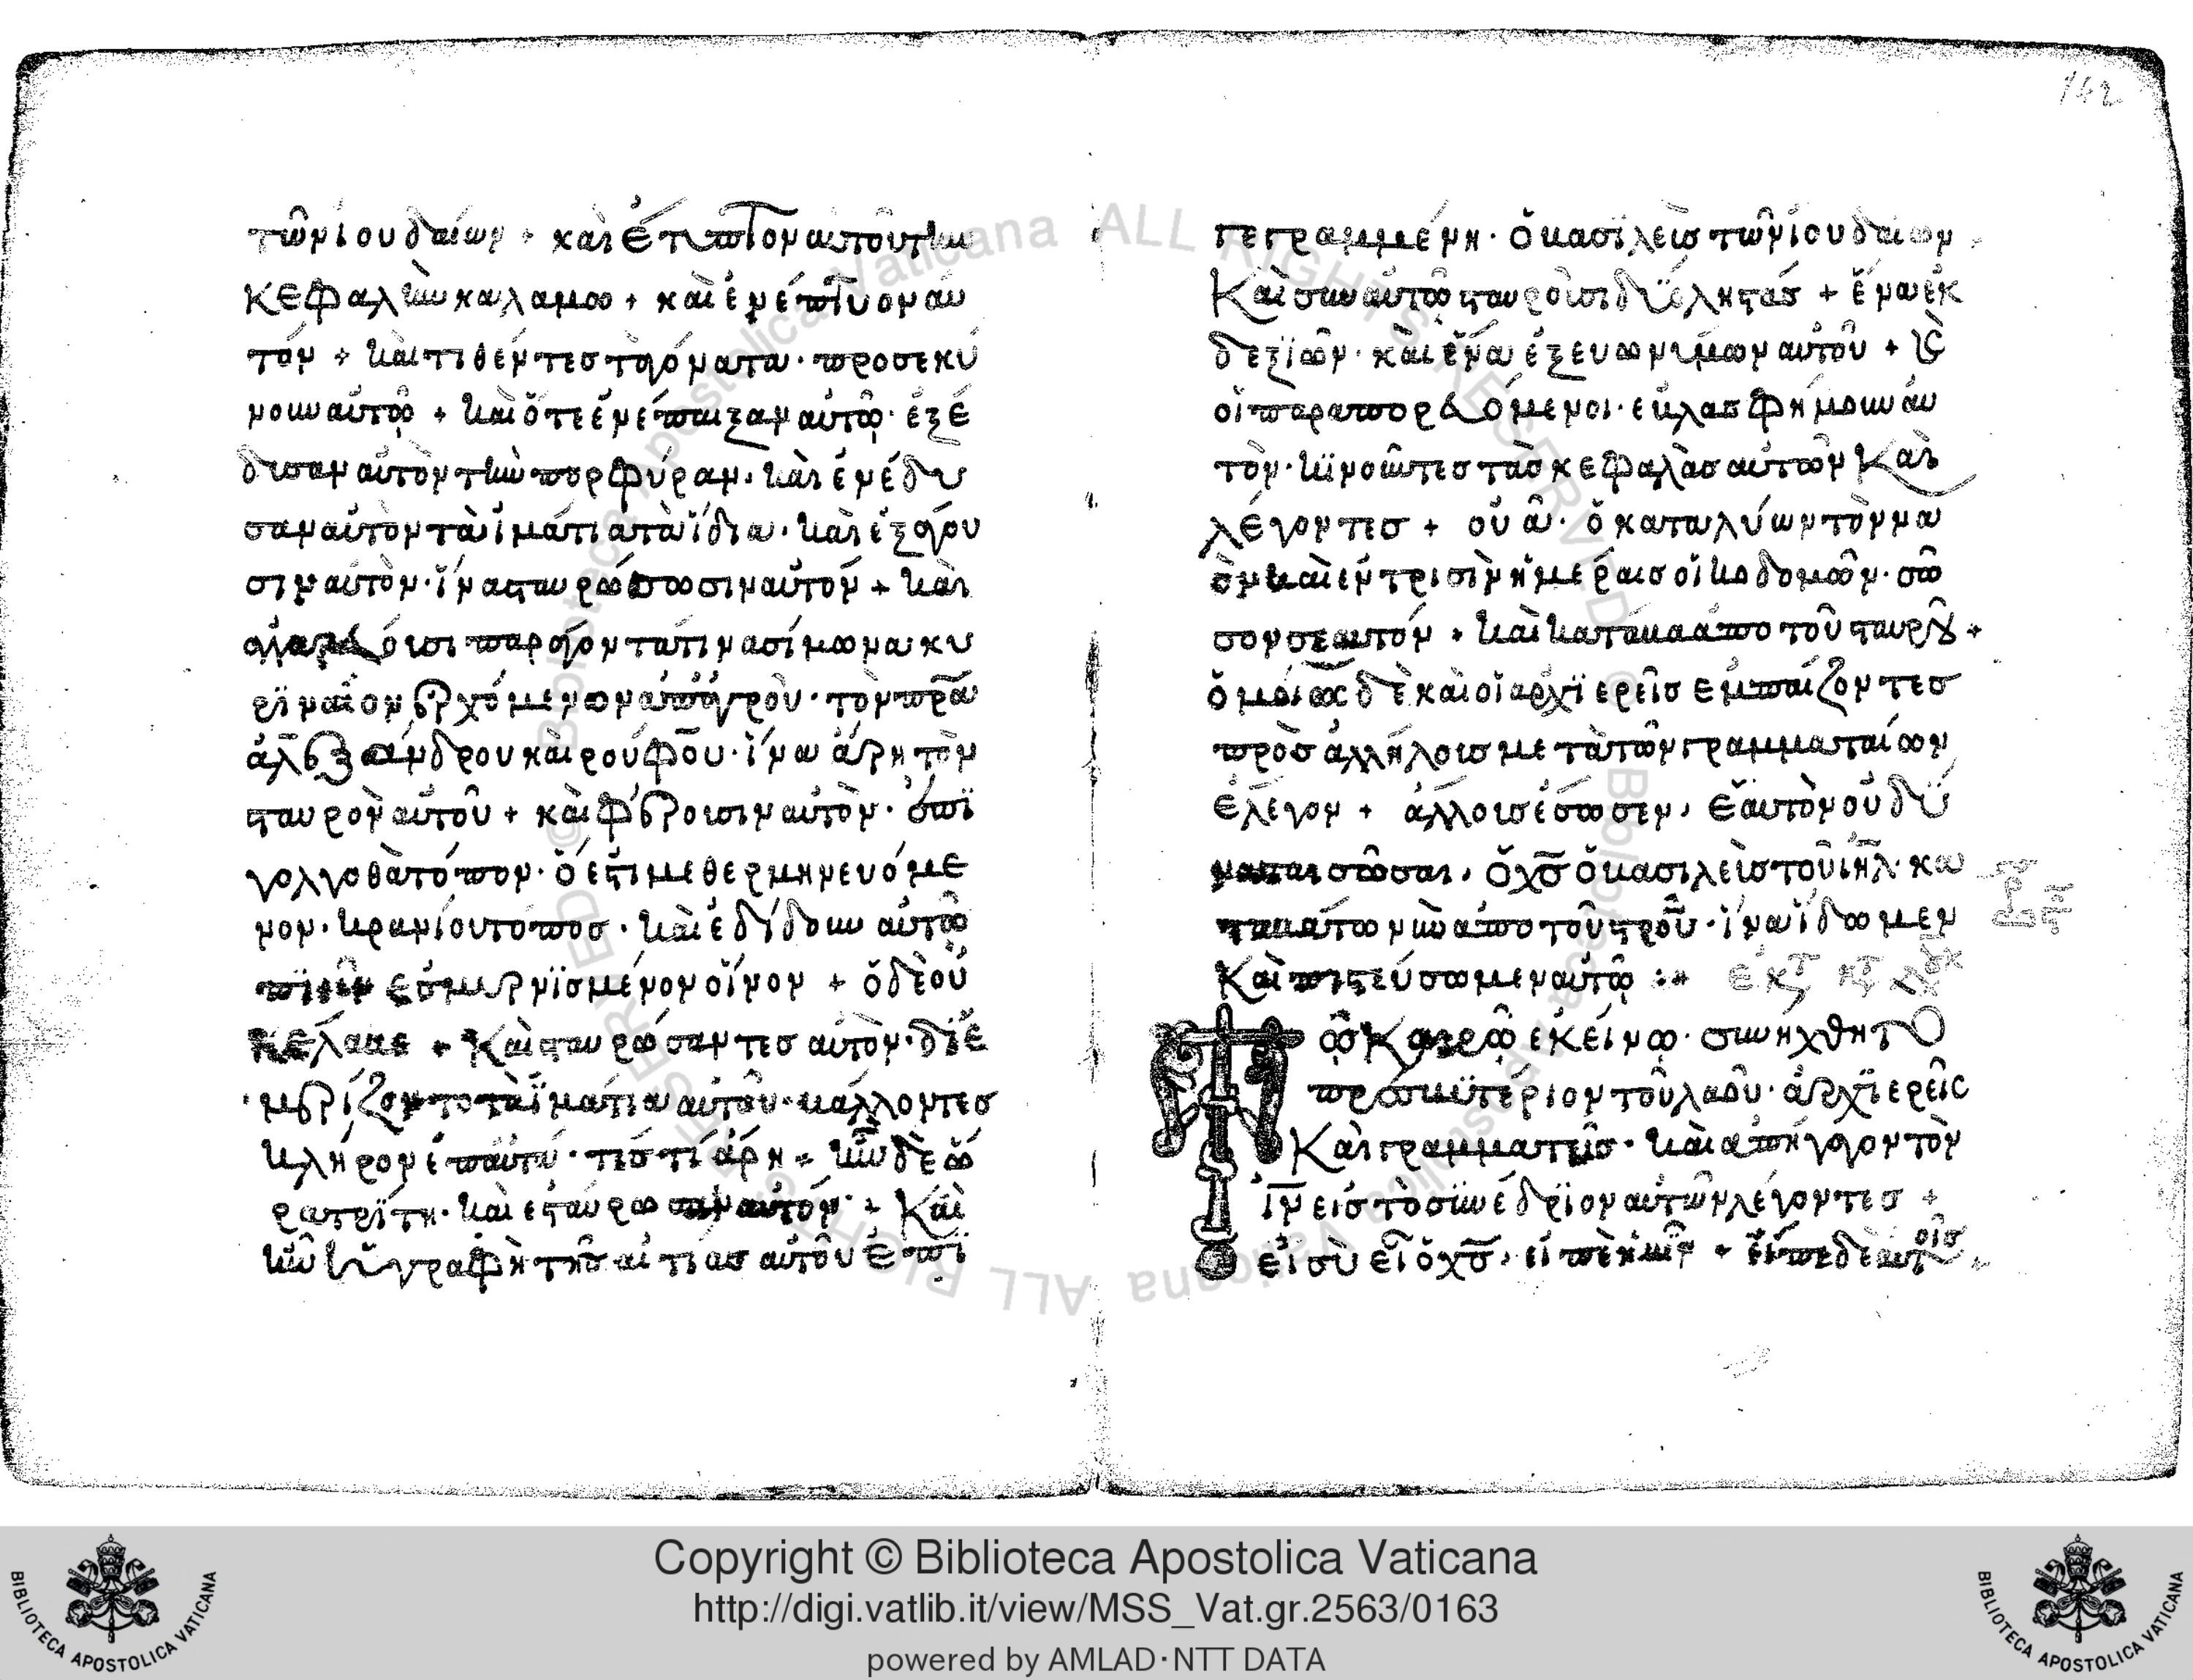 τῶν ἰουδαίων + καὶ ἔτυπτον αὐτοῦ την
κεφαλὴν καλαμω + καὶ ἐνέπτυον αυ
τόν + καὶ τιθέντες τὰ γόνατα · προσεκύ
νουν αὐτῶ + καὶ ὅτε ἐνέπαιξαν αὐτῶ · ἐξέ
δυσαν αὐτὸν τὴν πορφύραν · καὶ ἐνέδυ
σαν αὐτὸν τὰ ἱμάτια τὰ ἴδια · καὶ ἐξάγου
σιν αὐτὸν · ἵνα σταυρώσωσιν αὐτόν + καὶ
ἀγγαρεύουσι παράγοντά τινα σίμωνα κυ
ριναῖον ἐρχόμενον ἀπ ἀγροῦ · τὸν πρα
ἀλεξάνδρου καὶ ρούφου · ἵνα ἄρη τὸν
σταυρὸν αὐτοῦ + καὶ φέρουσιν αὐτὸν · ἐπῒ
γολγοθὰ τόπον · ὅ ἐστι μεθερμηνευόμε
νον · κρανίου τόπος · καὶ ἐδίδουν αὐτῶ
πϊεῖν ἐσμυρνϊσμένον οἶνον + ὁ δὲ οὐ
κ ἔλαβε + Καὶ σταυρώσαντες αὐτὸν · δϊε
μερίζοντο τὰ ϊμάτια αὐτοῦ · βάλλοντες
κλήρον ἐπ αὐτὰ · τίς τί ἄρη + ἦν δὲ ὥ
ρα τρίτη · καὶ ἐσταύρωσαν αὐτόν + Καὶ
ἦν ἡ ἐπιγραφὴ τῆς αἰτιας αὐτοῦ ἐπϊ
γεγραμμένη · ὁ βασϊλεὺς τῶν ἰουδαίων
Καὶ σὺν αὐτῶ σταυροῦσι δύο ληστάς + ἕνα ἐκ
δεξϊῶν · καὶ ἕνα ἐξ εὐωνύμων αὐτοῦ + κ
οἱ παραπορευόμενοι · ἐβλασφήμουν αὐ
τὸν · κϊνοῦντες τὰς κεφαλὰς αὐτῶν Καὶ
λέγοντες + οὐὰ · ὁ καταλύων τὸν να
ὸν καὶ ἐν τρισὶν ἡμέραις οἰκοδομῶν · σῶ
σον σεαυτόν + καὶ κατάβα ἀπο τοῦ σταυροῦ +
ὁμοίως δὲ καὶ οἱ ἀρχϊερεῖς ἐμπαίζοντες
πρὸς ἀλλήλους μετὰ τῶν γραμματαίων
ἔλεγον + ἄλλους ἔσωσεν, ἑαυτὸν οὐ δύ
ναται σῶσαι, ὁ χς ὁ βασιλεὺς τοῦ ιηλ · κα
ταβάτω νῦν ἀπο τοῦ στρου · ἵνα ἴδωμεν
Καὶ πιστεύσωμεν αὐτῶ :+
Τῶ Καιρῶ ἐκείνω · συνήχθη τὸ
πρεσβϋτέριον τοῦ λαοῦ · ἀρχϊερεῖς
Καὶ γραμματεῖς · καὶ ἀπήγαγον τὸν
ιν εἰς τὸ συνέδρϊον αὐτῶν λέγοντες +
εἰ σὺ εἶ ὁ χς, εἰπὲ ἡμῖν + εἶπε δὲ αὐτοῖς
142
Copyright © Biblioteca Apostolica Vaticana
http://digi.vatlib.it/view/MSS_Vat.gr.2563/0163
powered by AMLAD·NTT DATA
BIBLIOTECA APOSTOLICA VATICANA
BIBLIOTECA APOSTOLICA VATICANA